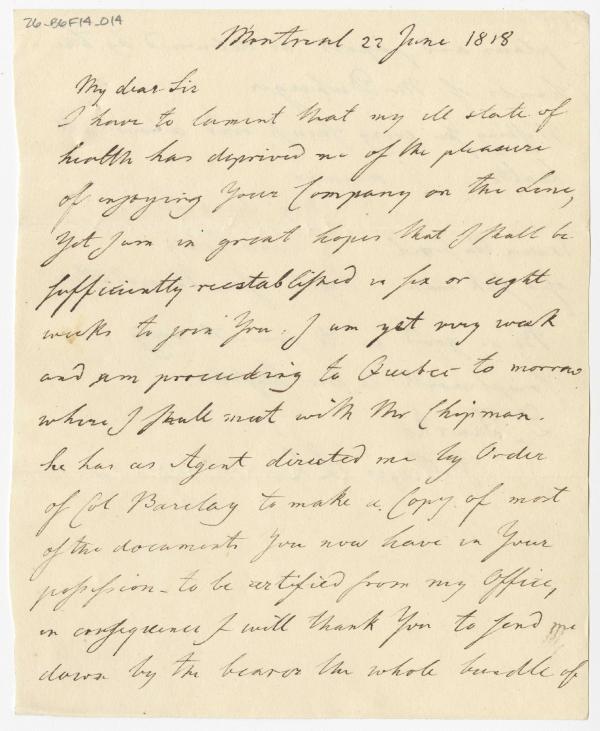 26-B6F14_014
Montreal 22 June 1818
My dear Sir
I have to lament that my ill state of
health has deprived me of the pleasure
of enjoying Your Company on the Line,
Yet I am in great hopes that I shall be
sufficiently reestablished in six or eight
weeks to join You. I am yet very weak
and am proceeding to Quebec to morrow
where I shall meet with Mr Chipman.
he has as Agent directed me by Order
of Col Barclay to make a Copy of most
of the documents You now have in Your
possession - to be certified from my Office,
in consequence I will thank You to send me
down by the bearer the whole bundle of